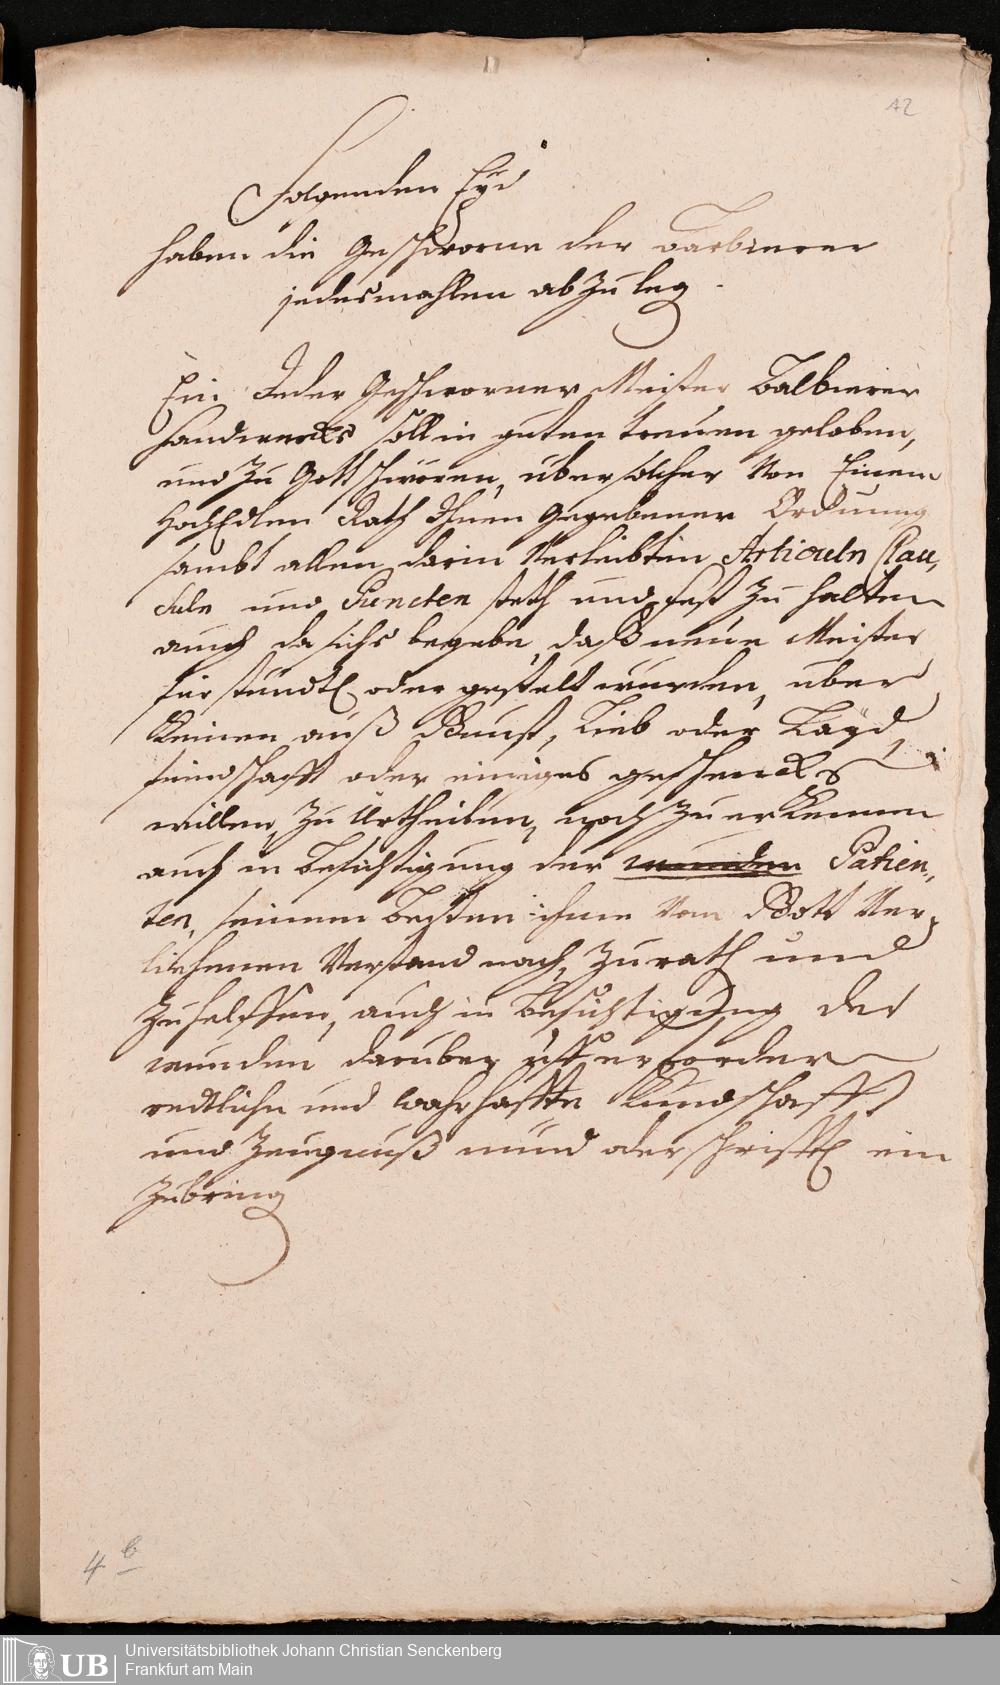 12
Folgenden Eyd
haben die Geschworne der Barbierer
jedesmahlen abzuleg.
Ein Jeder Geschworner Meister Balbierer
Handwercks soll in guten treuen geloben,
und zu Gott schwören, über solcher von Einem
HochEdlen Rath Ihnen Gegebener Ordnung
sambt allen darin verleibten Articuln Clau,
suln und Puncten steth und fest zu halten
auch da sichs begebe, daß neue Meister
fürstündt oder gestelt würden, über
Keinen auß Gunst, Lieb oder Layd,
feindschafft oder einiges geschencks
willen, zu Urtheilen, noch zu erkennen
auch in besichtigung der wunden Patien,,
ten, seinem besten ihme von Gott ver,
liehenen Verstand nach, zu rath und
zu helffen, auch in besichtigung der
wunden darüber uff erfordern
redtliche und wahrhaffte Kundschafft
und Zeugnuß mund oder schrifftl ein
zubring
4 b
Universitätsbibliothek Johann Christian Senckenberg
Frankfurt am Main
UB